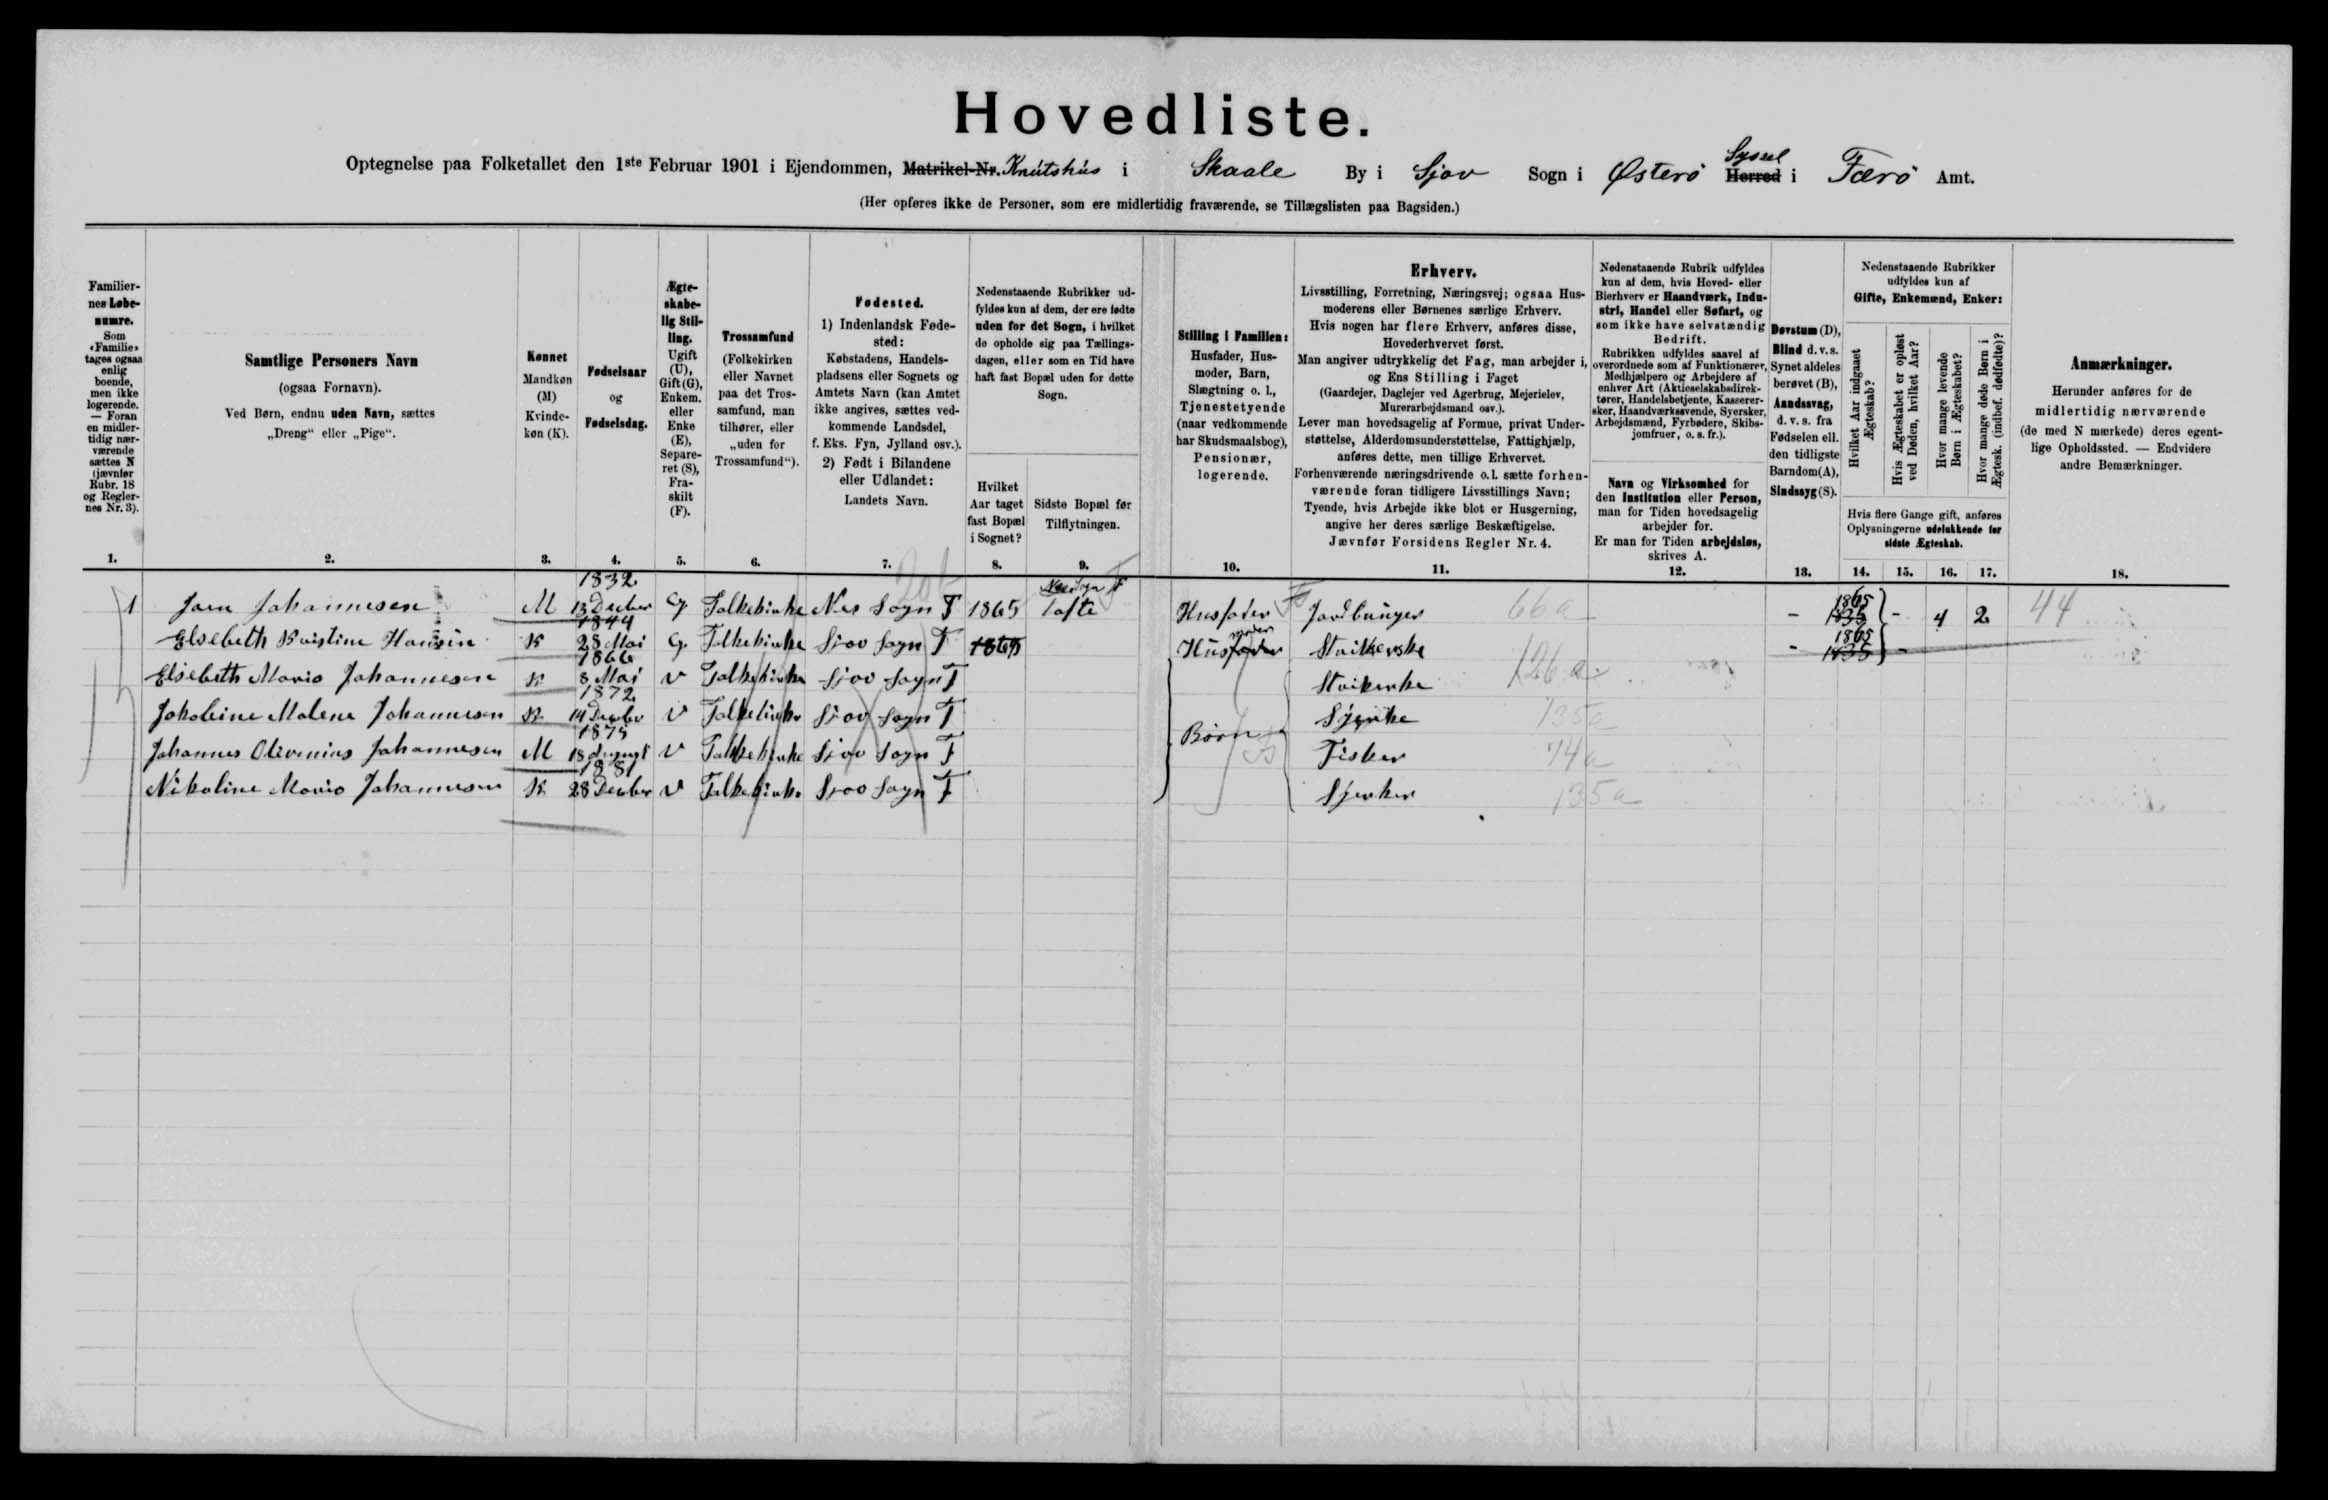 Hovedliste.
Optegnelse paa Folketallet den 1ste Februar 1901 i Ejendommen, Matrikel-Nr. Knútshús i Skaale By i Sjov Sogn i Østerö Herred Syssel i Færö Amt.
(Her opføres ikke de Personer, som ere midlertidig fraværende, se Tillægslisten paa Bagsiden.)
Familiernes Løbenumre.
Som «Familie» tages ogsaa enlig boende, men ikke logerende. — Foran en midlertidig nærværende sættes N (jævnfør Rubr. 18 og Reglernes Nr. 3).
1.
Samtlige Personers Navn
(ogsaa Fornavn).
Ved Børn, endnu uden Navn, sættes
„Dreng“ eller „Pige“.
2.
Kønnet
Mandkøn
(M)
Kvinde-
køn (K).
3.
Fødselsaar
og
Fødselsdag.
4.
Ægte-
skabe-
lig Stil-
ling.
Ugift
(U),
Gift (G),
Enkem.
eller
Enke
(E),
Separe-
ret (S),
Fra-
skilt
(F).
5.
Trossamfund
(Folkekirken
eller Navnet
paa det Tros-
samfund, man
tilhører, eller
„uden for
Trossamfund“).
6.
Fødested.
1) Indenlandsk Føde-
sted:
Købstadens, Handels-
pladsens eller Sognets og
Amtets Navn (kan Amtet
ikke angives, sættes ved-
kommende Landsdel,
f. Eks. Fyn, Jylland osv.).
2) Født i Bilandene
eller Udlandet:
Landets Navn.
7.
Nedenstaaende Rubrikker ud-
fyldes kun af dem, der ere fødte
uden for det Sogn, i hvilket
de opholde sig paa Tællings-
dagen, eller som en Tid have
haft fast Bopæl uden for dette
Sogn.
Hvilket
Aar taget
fast Bopæl
i Sognet?
8.
Sidste Bopæl før
Tilflytningen.
9.
Stilling i Familien:
Husfader, Hus-
moder, Barn,
Slægtning o. l.,
Tjenestetyende
(naar vedkommende
har Skudsmaalsbog),
Pensionær,
logerende.
10.
Erhverv.
Livsstilling, Forretning, Næringsvej; ogsaa Hus-
moderens eller Børnenes særlige Erhverv.
Hvis nogen har flere Erhverv, anføres disse,
Hovederhvervet først.
Man angiver udtrykkelig det Fag, man arbejder i,
og Ens Stilling i Faget
(Gaardejer, Daglejer ved Agerbrug, Mejerielev,
Murerarbejdsmand osv.).
Lever man hovedsagelig af Formue, privat Under-
støttelse, Alderdomsunderstøttelse, Fattighjælp,
anføres dette, men tillige Erhvervet.
Forhenværende næringsdrivende o.l. sætte forhen-
værende foran tidligere Livsstillings Navn;
Tyende, hvis Arbejde ikke blot er Husgerning,
angive her deres særlige Beskæftigelse.
Jævnfør Forsidens Regler Nr. 4.
11.
Nedenstaaende Rubrik udfyldes
kun af dem, hvis Hoved- eller
Bierhverv er Haandværk, Indu-
stri, Handel eller Søfart, og
som ikke have selvstændig
Bedrift.
Rubrikken udfyldes saavel af
overordnede som af Funktionærer,
Medhjælpere og Arbejdere af
enhver Art (Aktieselskabsdirek-
tører, Handelsbetjente, Kasserer-
sker, Haandværkssvende, Syersker,
Arbejdsmænd, Fyrbødere, Skibs-
jomfruer, o. s. fr.).
Navn og Virksomhed for
den Institution eller Person,
man for Tiden hovedsagelig
arbejder for.
Er man for Tiden arbejdsløs,
skrives A.
12.
Døvstum (D),
Blind d. v. s.
Synet aldeles
berøvet (B),
Aandssvag,
d. v. s. fra
Fødselen ell.
den tidligste
Barndom (A),
Sindssyg (S).
13.
Nedenstaaende Rubrikker
udfyldes kun af
Gifte, Enkemænd, Enker:
Hvilket Aar indgaaet Ægteskab?
Hvis Ægteskabet er opløst ved Døden, hvilket Aar?
Hvor mange levende Børn i Ægteskabet?
Hvor mange døde Børn i Ægtesk. (indbef. dødfødte)?
Hvis flere Gange gift, anføres
Oplysningerne udelukkende for
sidste Ægteskab.
14. 15. 16. 17.
Anmærkninger.
Herunder anføres for de
midlertidig nærværende
(de med N mærkede) deres egent-
lige Opholdssted. — Endvidere
andre Bemærkninger.
18.
1 Joen Johannesen M 1832 13 Decber G Folkekirke Nes Sogn F 1865 Nes Sogn F Tofte Husfader Jordbruger 66a - 1865 - 4 2 44
Elsebeth Kristine Hansen K 1844 28 Mai G Folkekirke Sjov Sogn F 1865 Husmoder Strikerske - 1865 -
Elsebeth Maria Johannesen K 1866 8 Mai U Folkekirke Sjov Sogn F Strikerske 126a
Jakobine Malene Johannesen K 1872 14 Decber U Folkekirke Sjov Sogn F Børn Syerske 135a
Johannes Oliverius Johannesen M 1875 18 August U Folkekirke Sjov Sogn F Fisker 74a
Nikoline Maria Johannesen K 1881 28 Decber U Folkekirke Sjov Sogn F Syerker 135a